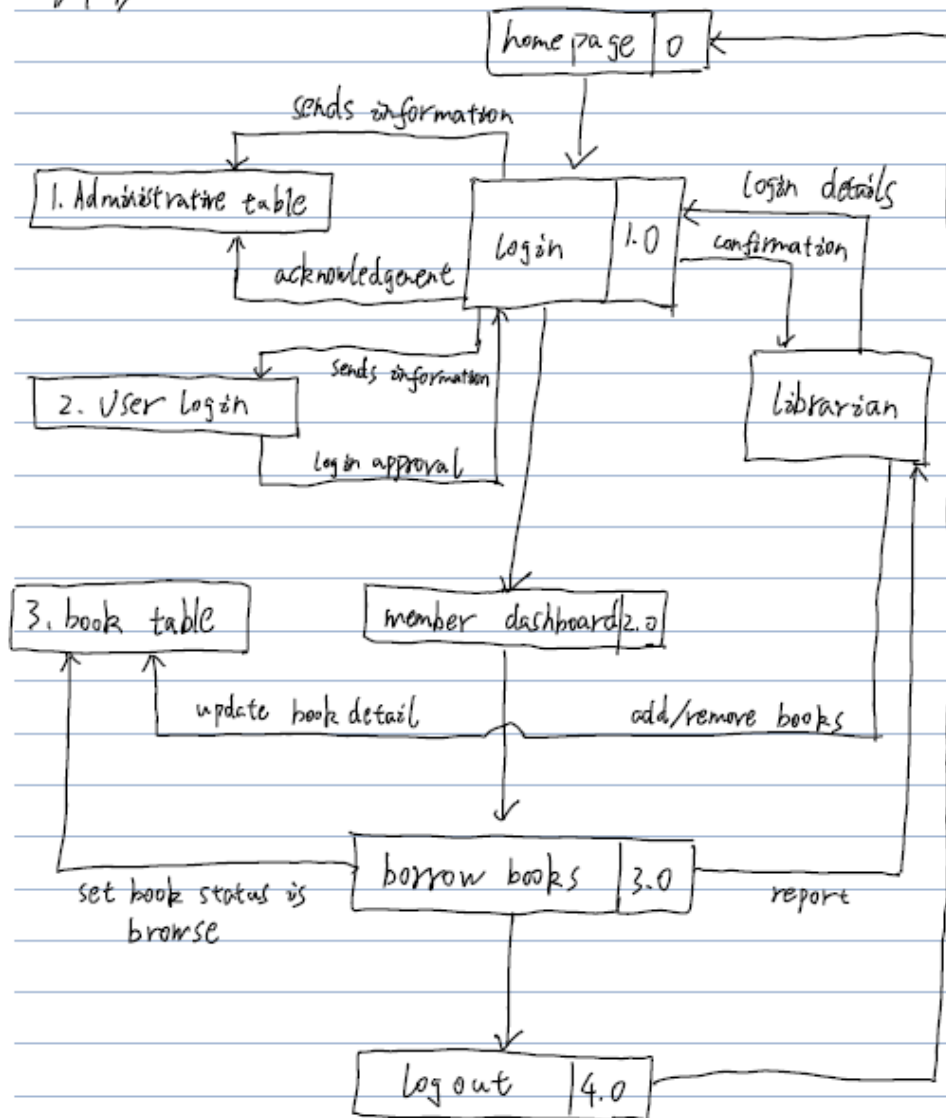 home page 0
sends information
1. Administrative table
login 1.0
login details
confirmation
acknowledgement
sends information
2. User login
librarian
login approval
3. book table
member dashboard 2.0
update book detail
add/remove books
borrow books 3.0
set book status is
browse
report
log out 4.0